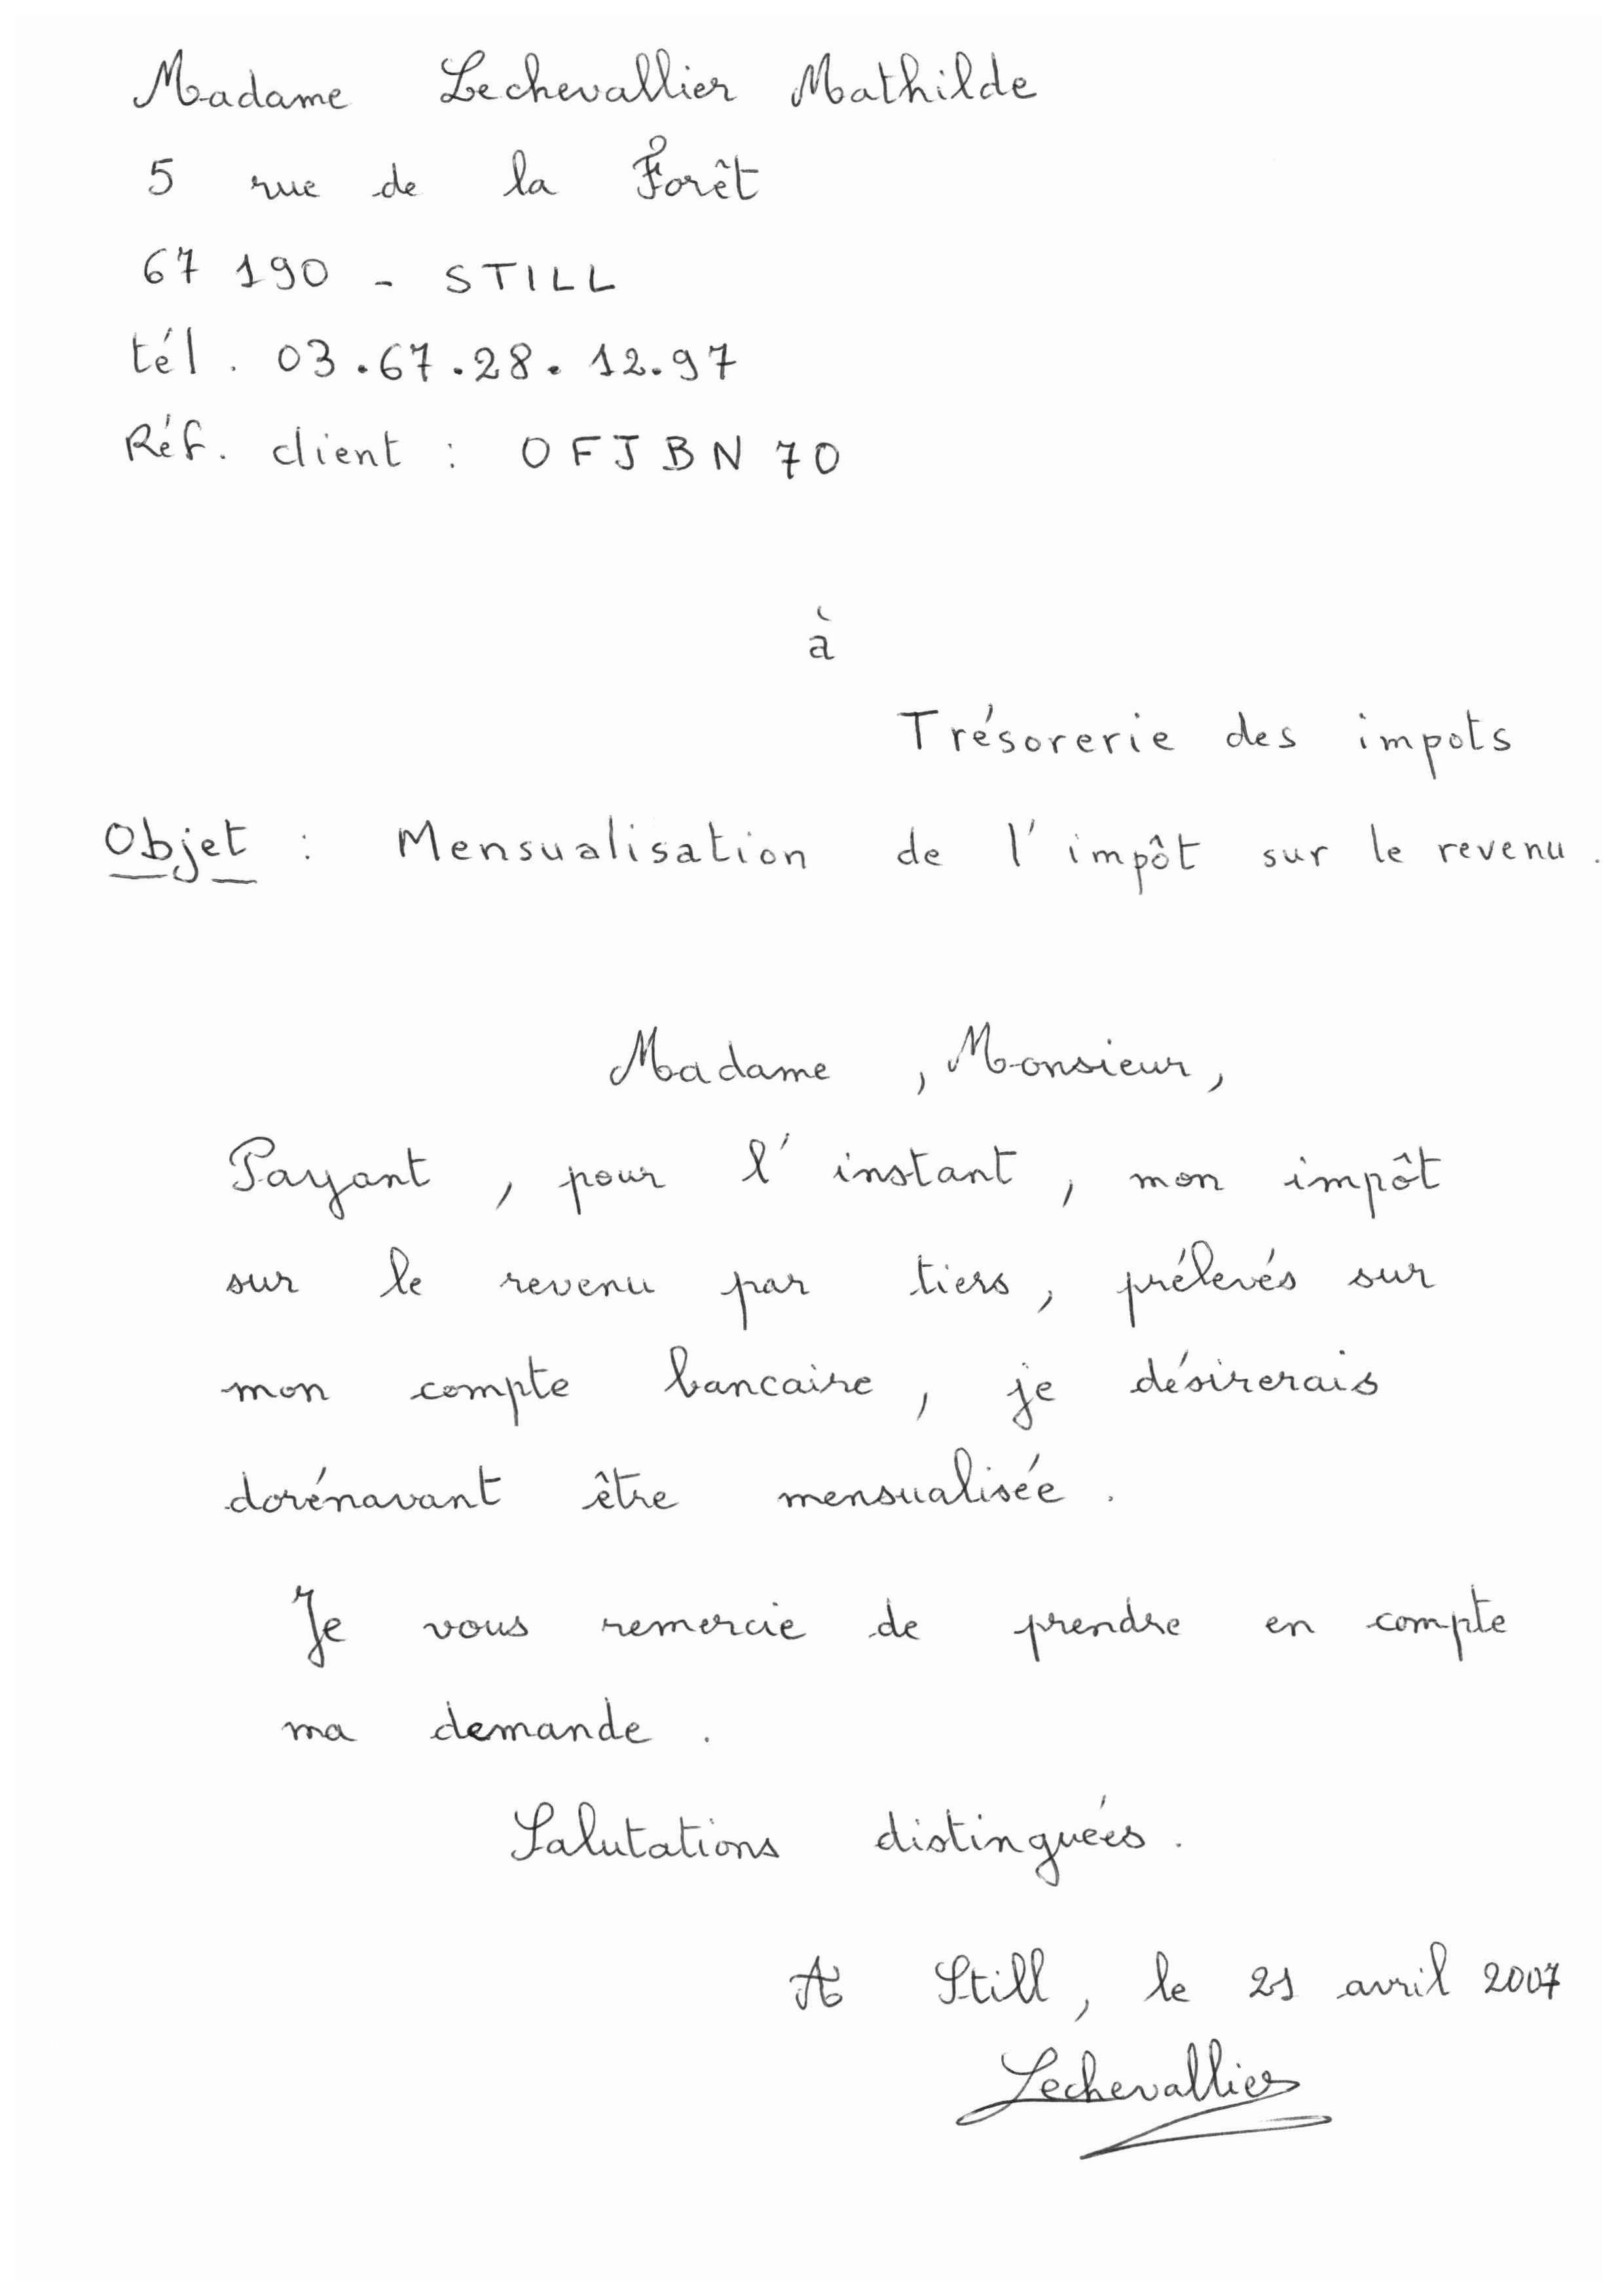 Madame Lechevallier Mathilde
5 rue de la Forêt
67 190 - STILL
tél. 03.67.28.12.97
Réf. client : OFJBN70
à
Trésorerie des impots
Objet : Mensualisation de l'impôt sur le revenu.
Madame, Monsieur,
Payant, pour l'instant, mon impôt
sur le revenu par tiers, prélevés sur
mon compte bancaire, je désirerais
dorénavant être mensualisée.
Je vous remercie de prendre en compte
ma demande.
Salutations distinguées.
A Still, le 21 avril 2007
Lechevallier